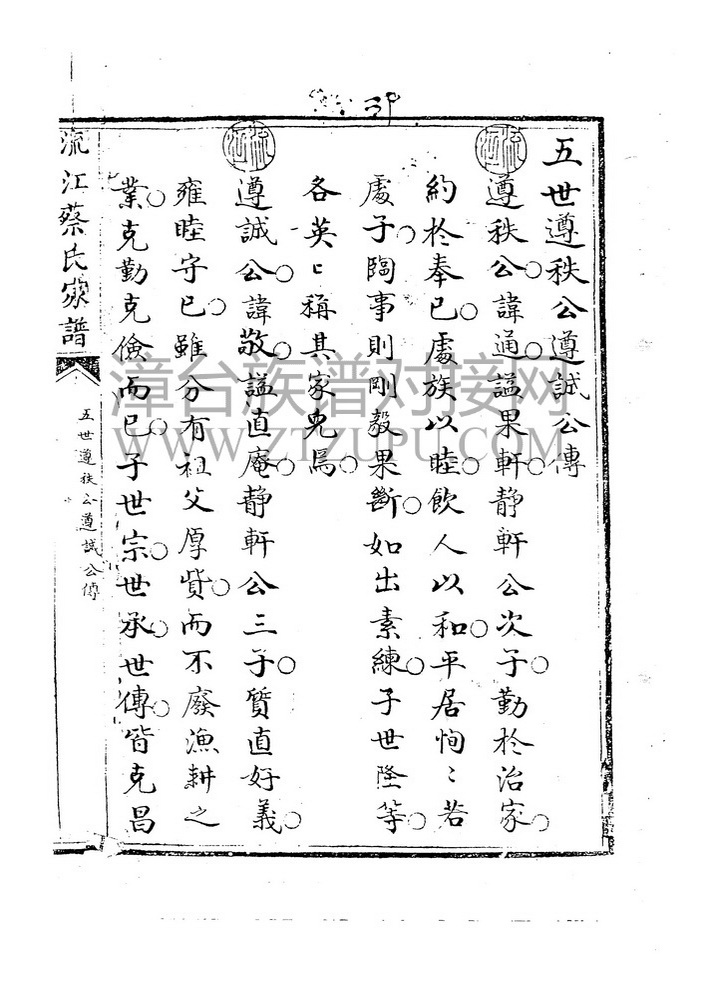 五世遵秩公遵誠公傳
遵秩公○諱通○謚果軒○静軒公次子○勤於治家○
約於奉已○處族以睦○飲人以和○平居恂〻若
處子○臨事則剛毅果斷○如出素練○子世隆等○
各英〻稱其家兒焉○
遵誠公○諱敬○謚直庵○静軒公三子○質直好義○
雍睦守已○雖分有祖父厚貲○而不廢漁耕之
業○克勤克儉而已○子世宗○世承○世傳○皆克昌
流江蔡氏家譜
五世遵秩公遵誠公傳
流江
流江
漳台族谱对接网
WWW.ZTZUPU.COM